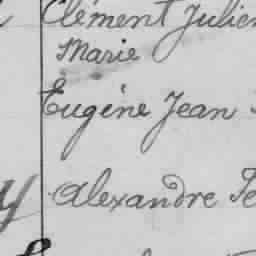 Clément Julien
Marie
Eugène Jean
Alexandre